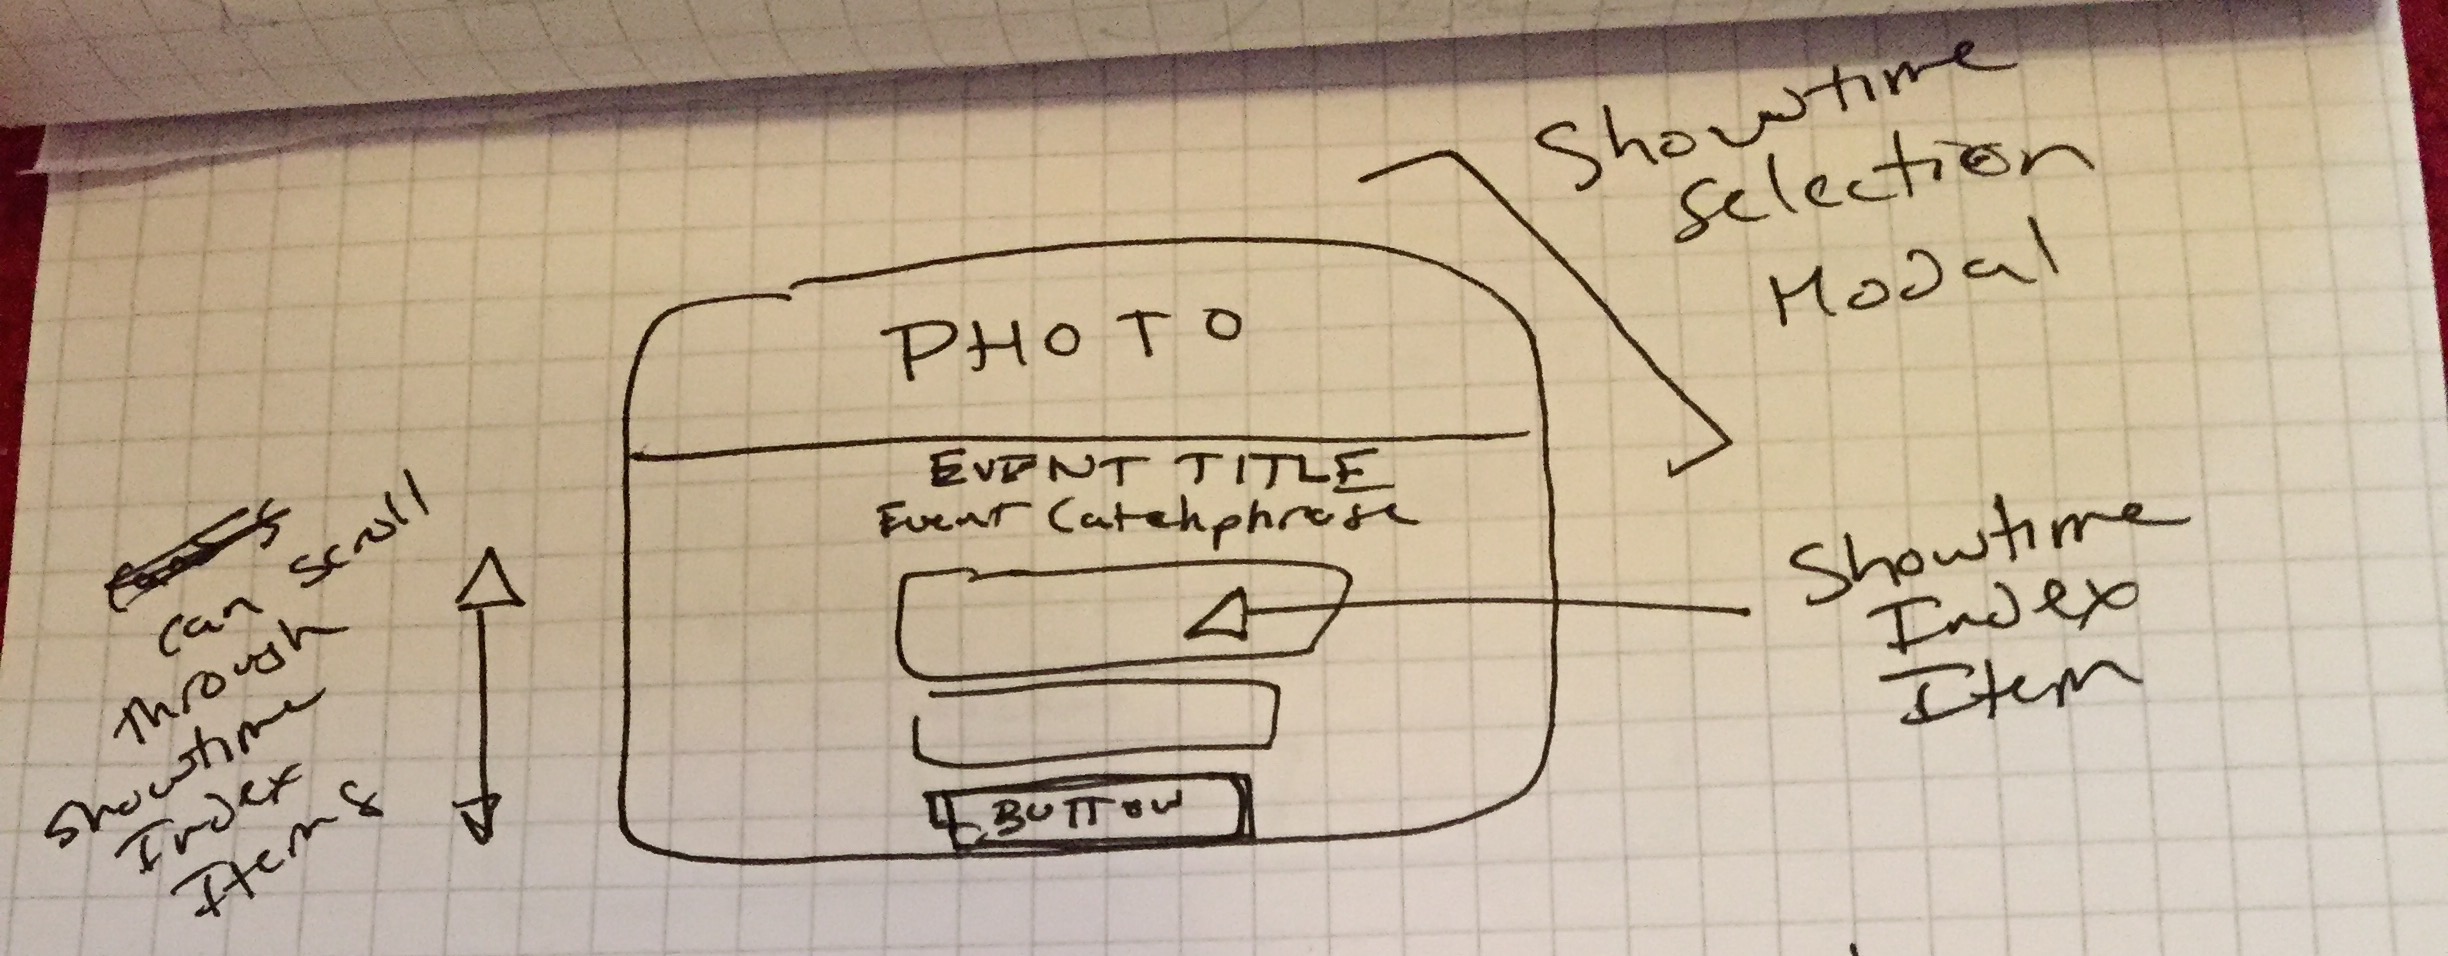 Showtime
Selection
Modal
PHOTO
EVENT TITLE
Event Catchphrase
BUTTON
Showtime
Index
Item
can scroll
through
showtime
Index
Items